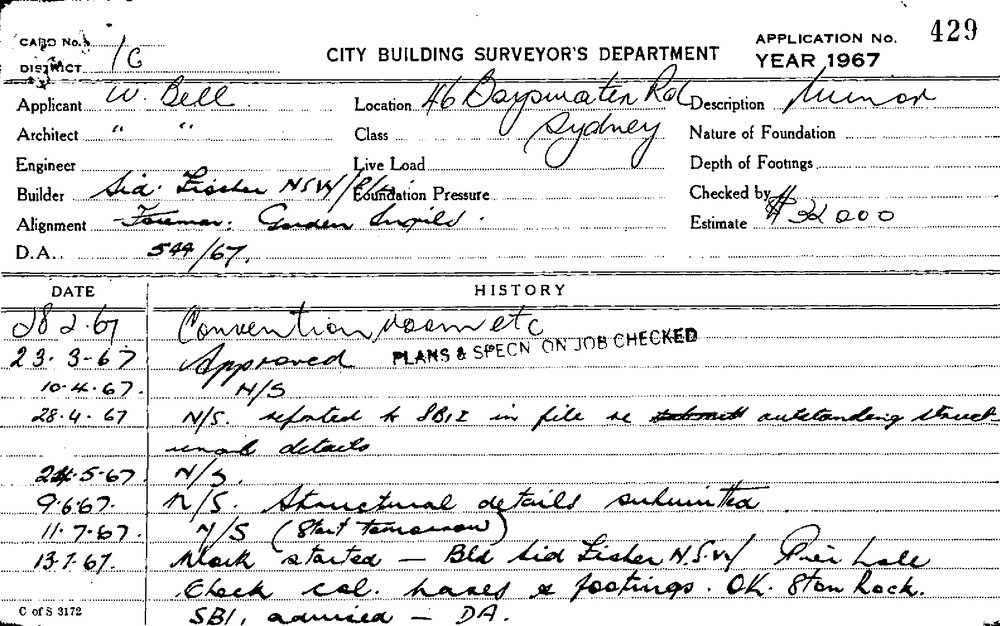 CARD No.
DISTRICT 1G
CITY BUILDING SURVEYOR'S DEPARTMENT
APPLICATION No. 429
YEAR 1967
Applicant W. Bell Location 46 Bayswater Rd Description Minor
Architect " " Class Sydney Nature of Foundation
Engineer Live Load Depth of Footings
Builder Sid. Fischer NSW P/L Foundation Pressure Checked by
Alignment Foreman. Gordon Estimate $32000
D.A. 544/67.
DATE HISTORY
28 2.67 Convention room etc
23. 3-67 Approved PLANS & SPECN ON JOB CHECKED
10.4.67. N/S
28.4.67 N/S. reported to SBI in file re outstanding struct
ural details
24.5.67 N/S.
9.6.67. N/S. Structural details submitted.
11.7.67. N/S (Start tomorrow)
13.7.67. Work started — Bld Sid Fischer N.S.W/ Pier hole
Check col. bases & footings. OK. Ston Rock.
C of S 3172 SBI, advised — DA.